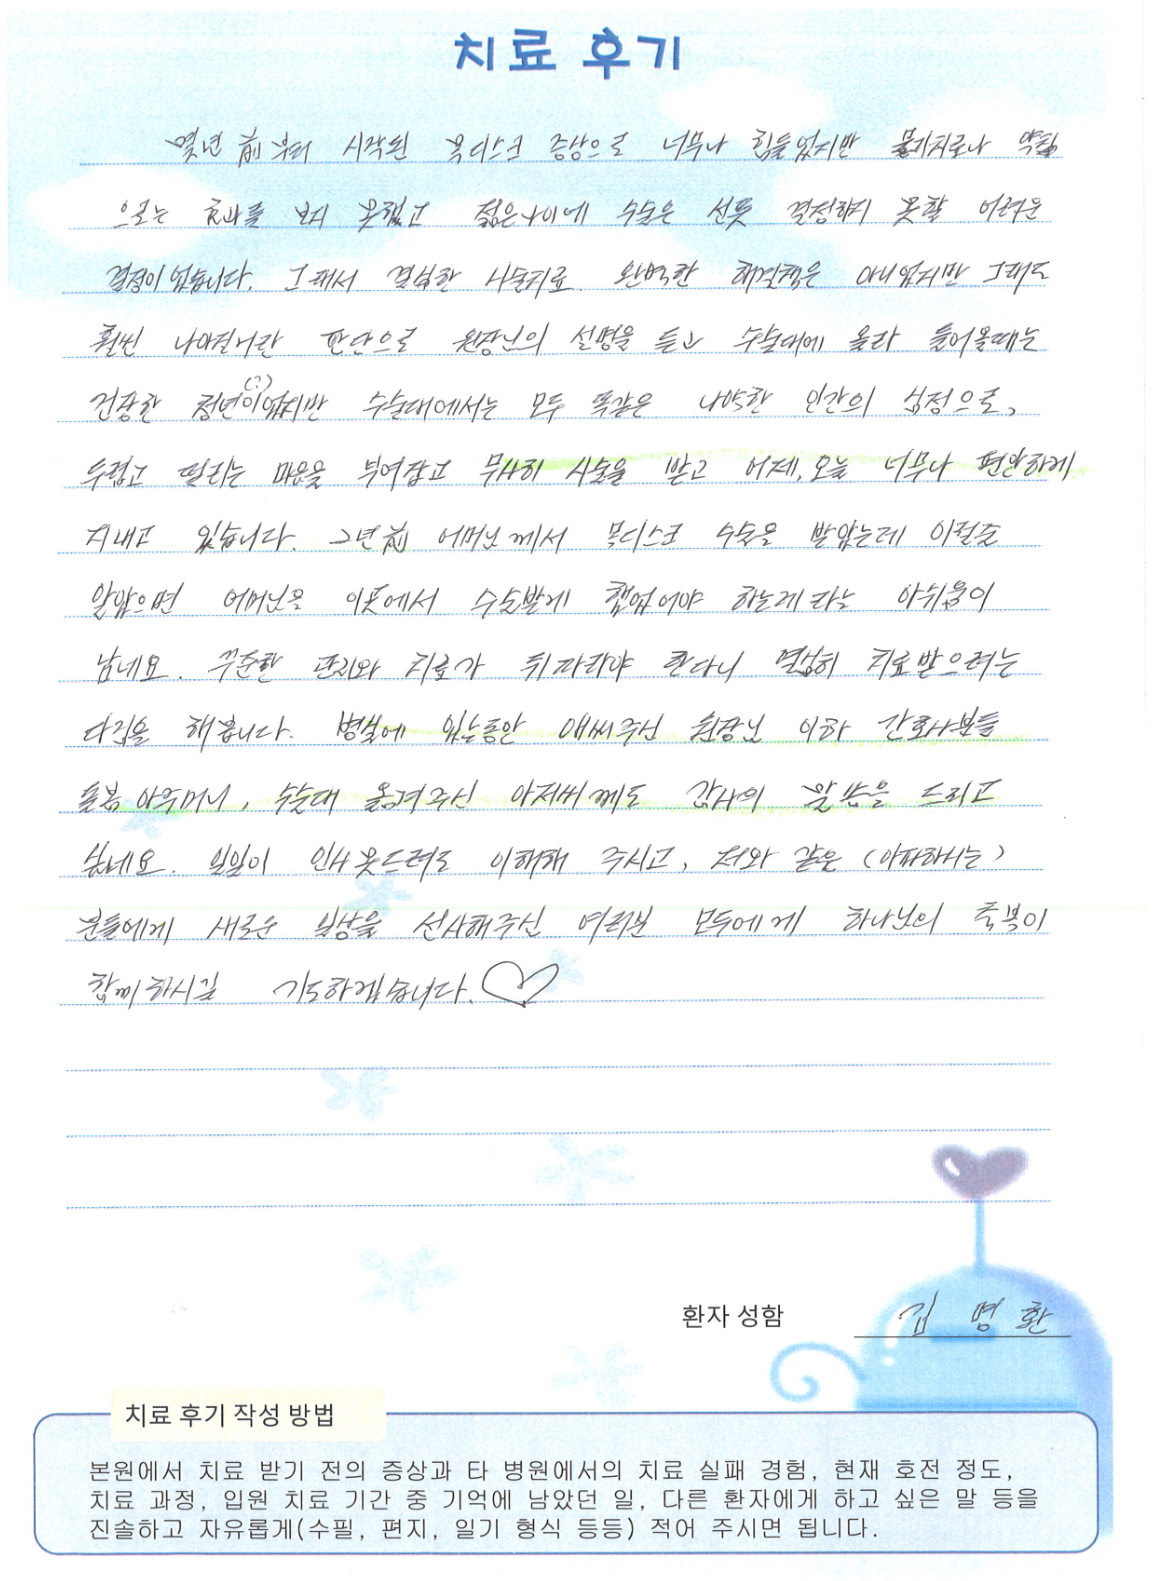 치료 후기
몇년 前부터 시작된 목디스크 증상으로 너무나 힘들었지만 물리치료나 약
으로는 효과를 보지 못했고 젊은나이에 수술은 선뜻 결정하지 못할 어려운
결정이었습니다. 그래서 결심한 시술치료. 완벽한 해결책은 아니었지만 그래도
훨씬 나아질거란 판단으로 원장님의 설명을 듣고 수술대에 올라 들어올때는
건장한 청년이(?)었지만 수술대에서는 모두 똑같은 나약한 인간의 심정으로,
두렵고 떨리는 마음을 부여잡고 무사히 시술을 받고 어제, 오늘 너무나 편안하게
지내고 있습니다. 그년前 어머님께서 목디스크 수술을 받았는데 이럴줄
알았으면 어머님을 이곳에서 수술받게 했었어야 하는게라는 아쉬움이
남네요. 꾸준한 관리와 치료가 뒤따라야 한다니 열심히 치료받으려는
다짐을 해봅니다. 병실에 있는동안 애써주신 원장님 이하 간호사분들
돌봄 아주머니, 수술대 옮겨주신 아저씨께도 감사의 말씀을 드리고
싶네요. 일일이 인사못드려도 이해해 주시고, 저와 같은 (아파하시는)
분들에게 새로운 일상을 선사해주신 여러분 모두에게 하나님의 축복이
함께하시길 기도하겠습니다.
환자 성함 김 명 환
치료 후기 작성 방법
본원에서 치료 받기 전의 증상과 타 병원에서의 치료 실패 경험, 현재 호전 정도,
치료 과정, 입원 치료 기간 중 기억에 남았던 일, 다른 환자에게 하고 싶은 말 등을
진솔하고 자유롭게(수필, 편지, 일기 형식 등등) 적어 주시면 됩니다.